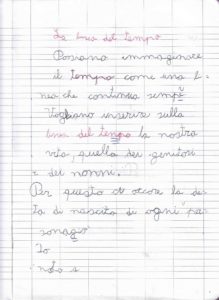 La linea del tempo
Possiamo immaginare
il tempo come una li
nea che continua sempre
Vogliamo inserire sulla
linea del tempo la nostra
vita, quella dei genitori
e dei nonni.
Per questo ci occorre la da
ta di nascita di ogni per
sonaggio
Io
nato a